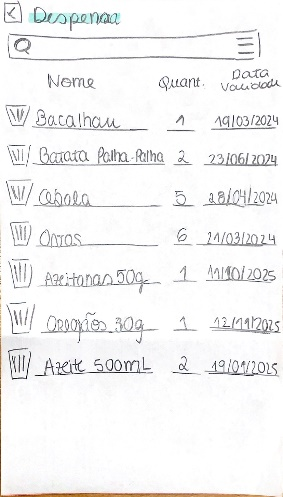 Despensa
Nome Quant. Data Validade
Bacalhau 1 19/03/2024
Batata Palha-Palha 2 23/06/2024
Cebola 5 28/04/2024
Ovos 6 21/03/2024
Azeitonas 50g 1 11/10/2025
Oregãos 30g 1 12/11/2025
Azeite 500mL 2 19/01/2025